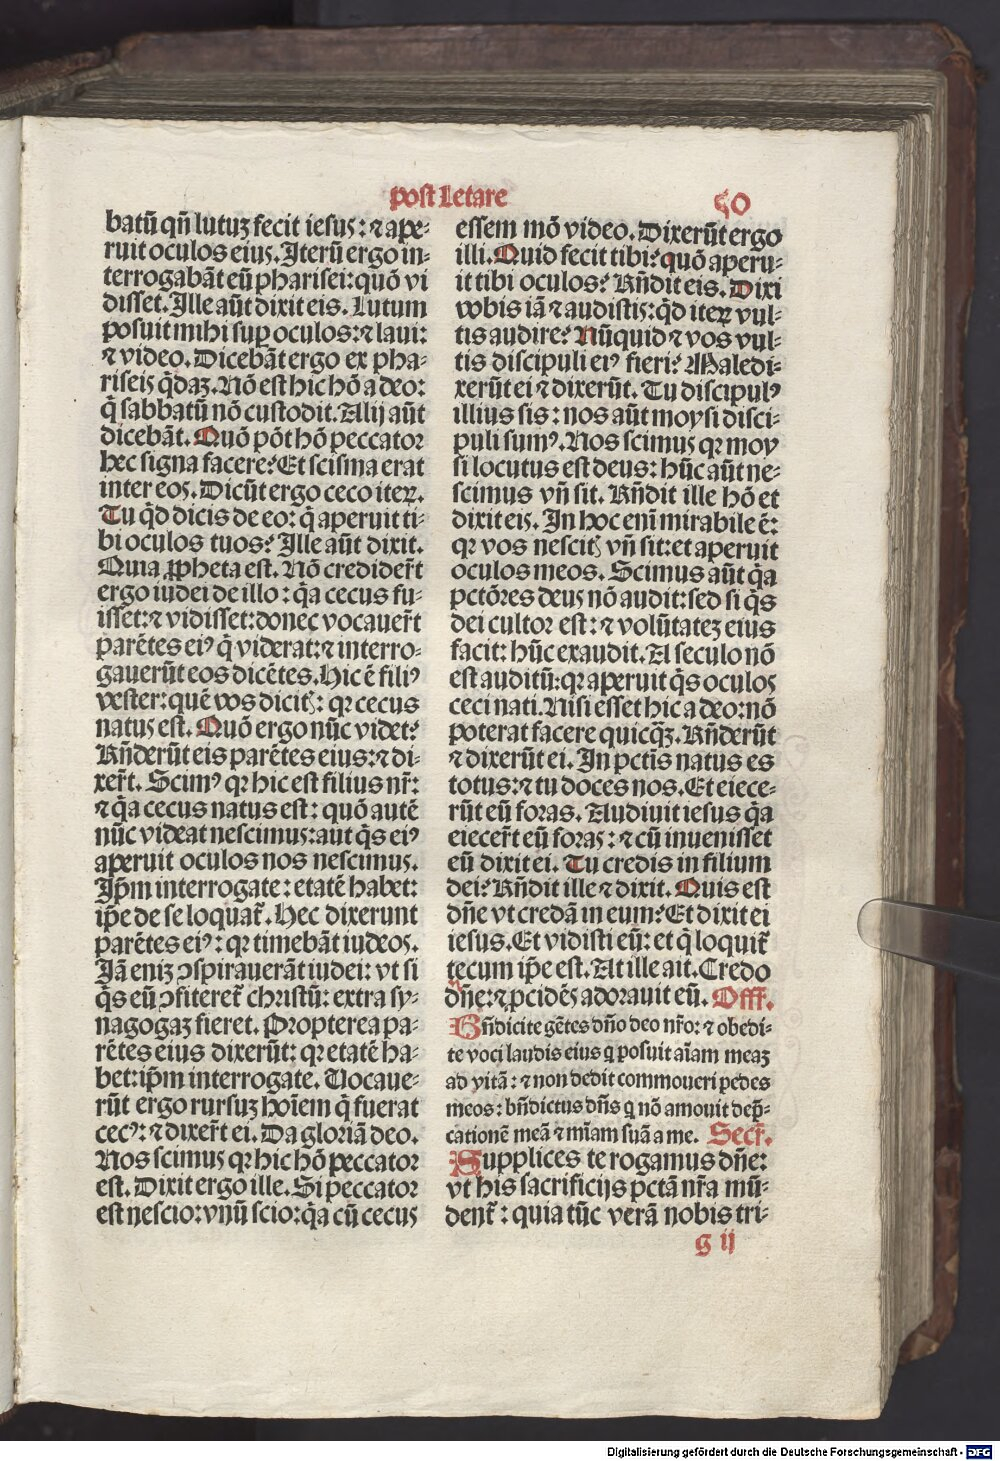 post Letare
50
batū qn̄ lutuꝫ fecit iesus: ⁊ ape-
ruit oculos eius. Iterū ergo in-
terrogabāt eū pharisei: quō vi
disset. Ille aūt dixit eis. Lutum
posuit mihi suꝑ oculos: ⁊ laui:
⁊ video. Dicebāt ergo ex pha-
riseis q̄daꝫ. Nō est hic hō a deo:
q̄ sabbatū nō custodit. Alij aūt
dicebāt. Quō pōt hō peccator
hec signa facere? Et scisma erat
inter eos. Dicūt ergo ceco iteꝝ.
Tu q̄d dicis de eo: q̄ aperuit ti-
bi oculos tuos? Ille aūt dixit.
Quia ꝓpheta est. Nō credider̄t
ergo iudei de illo: q̄a cecus fu-
isset: ⁊ vidisset: donec vocauer̄t
parētes eiꝰ q̄ viderat: ⁊ interro-
gauerūt eos dicētes. Hic ē filiꝰ
vester: quē vos dicitꝭ: qꝛ cecus
natus est. Quō ergo nūc videt?
Rn̄derūt eis parētes eius: ⁊ di-
xer̄t. Scimꝰ qꝛ hic est filius nr̄:
⁊ q̄a cecus natus est: quō autē
nūc videat nescimus: aut q̄s eiꝰ
aperuit oculos nos nescimus.
Ip̄m interrogate: etatē habet:
ip̄e de se loquat̄. Hec dixerunt
parētes eiꝰ: qꝛ timebāt iudeos.
Iā eniꝫ ↄspirauerāt iudei: vt si
q̄s eū ↄfiteret̄ christū: extra sy-
nagogaꝫ fieret. Propterea pa-
rētes eius dixerūt: qꝛ etatē ha-
bet: ip̄m interrogate. Uocaue-
rūt ergo rursuꝫ hoīem q̄ fuerat
cecꝰ: ⁊ dixer̄t ei. Da gloriā deo.
Nos scimus qꝛ hic hō peccator
est. Dixit ergo ille. Si peccator
est nescio: vnū scio: q̄a cū cecus
essem mō video. Dixerūt ergo
illi. Quid fecit tibi? quō aperu-
it tibi oculos? Rn̄dit eis. Dixi
vobis iā ⁊ audistis: q̄d iteꝝ vul-
tis audire? Nūquid ⁊ vos vul-
tis discipuli eiꝰ fieri? Maledi-
xerūt ei ⁊ dixerūt. Tu discipulꝰ
illius sis: nos aūt moysi disci-
puli sumꝰ. Nos scimus qꝛ moy
si locutus est deus: hūc aūt ne-
scimus vn̄ sit. Rn̄dit ille hō et
dixit eis. In hoc enī mirabile ē:
qꝛ vos nescitꝭ vn̄ sit: et aperuit
oculos meos. Scimus aūt q̄a
pctōres deus nō audit: sed si q̄s
dei cultor est: ⁊ volūtateꝫ eius
facit: hūc exaudit. A seculo nō
est auditū: qꝛ aperuit q̄s oculos
ceci nati. Nisi esset hic a deo: nō
poterat facere quicq̄ꝫ. Rn̄derūt
⁊ dixerūt ei. In pctīs natus es
totus: ⁊ tu doces nos. Et eiece-
rūt eū foras. Audiuit iesus q̄a
eiecer̄t eū foras: ⁊ cū inuenisset
eū dixit ei. Tu credis in filium
dei? Rn̄dit ille ⁊ dixit. Quis est
dn̄e vt credā in eum? Et dixit ei
iesus. Et vidisti eū: et q̄ loquit̄
tecum ip̄e est. At ille ait. Credo
dn̄e: ⁊ ꝓcidēs adorauit eū. Offr̄.
Bn̄dicite gētes dn̄o deo nr̄o: ⁊ obedi-
te voci laudis eius q posuit aīam meaꝫ
ad vitā: ⁊ non dedit commoueri pedes
meos: bn̄dictus dn̄s q nō amouit dep̄-
cationē meā ⁊ mīam suā a me. Secr̄.
Supplices te rogamus dn̄e:
vt his sacrificijs pctā nr̄a mū-
dent̄: quia tūc verā nobis tri-
g ij
Digitalisierung gefördert durch die Deutsche Forschungsgemeinschaft - DFG